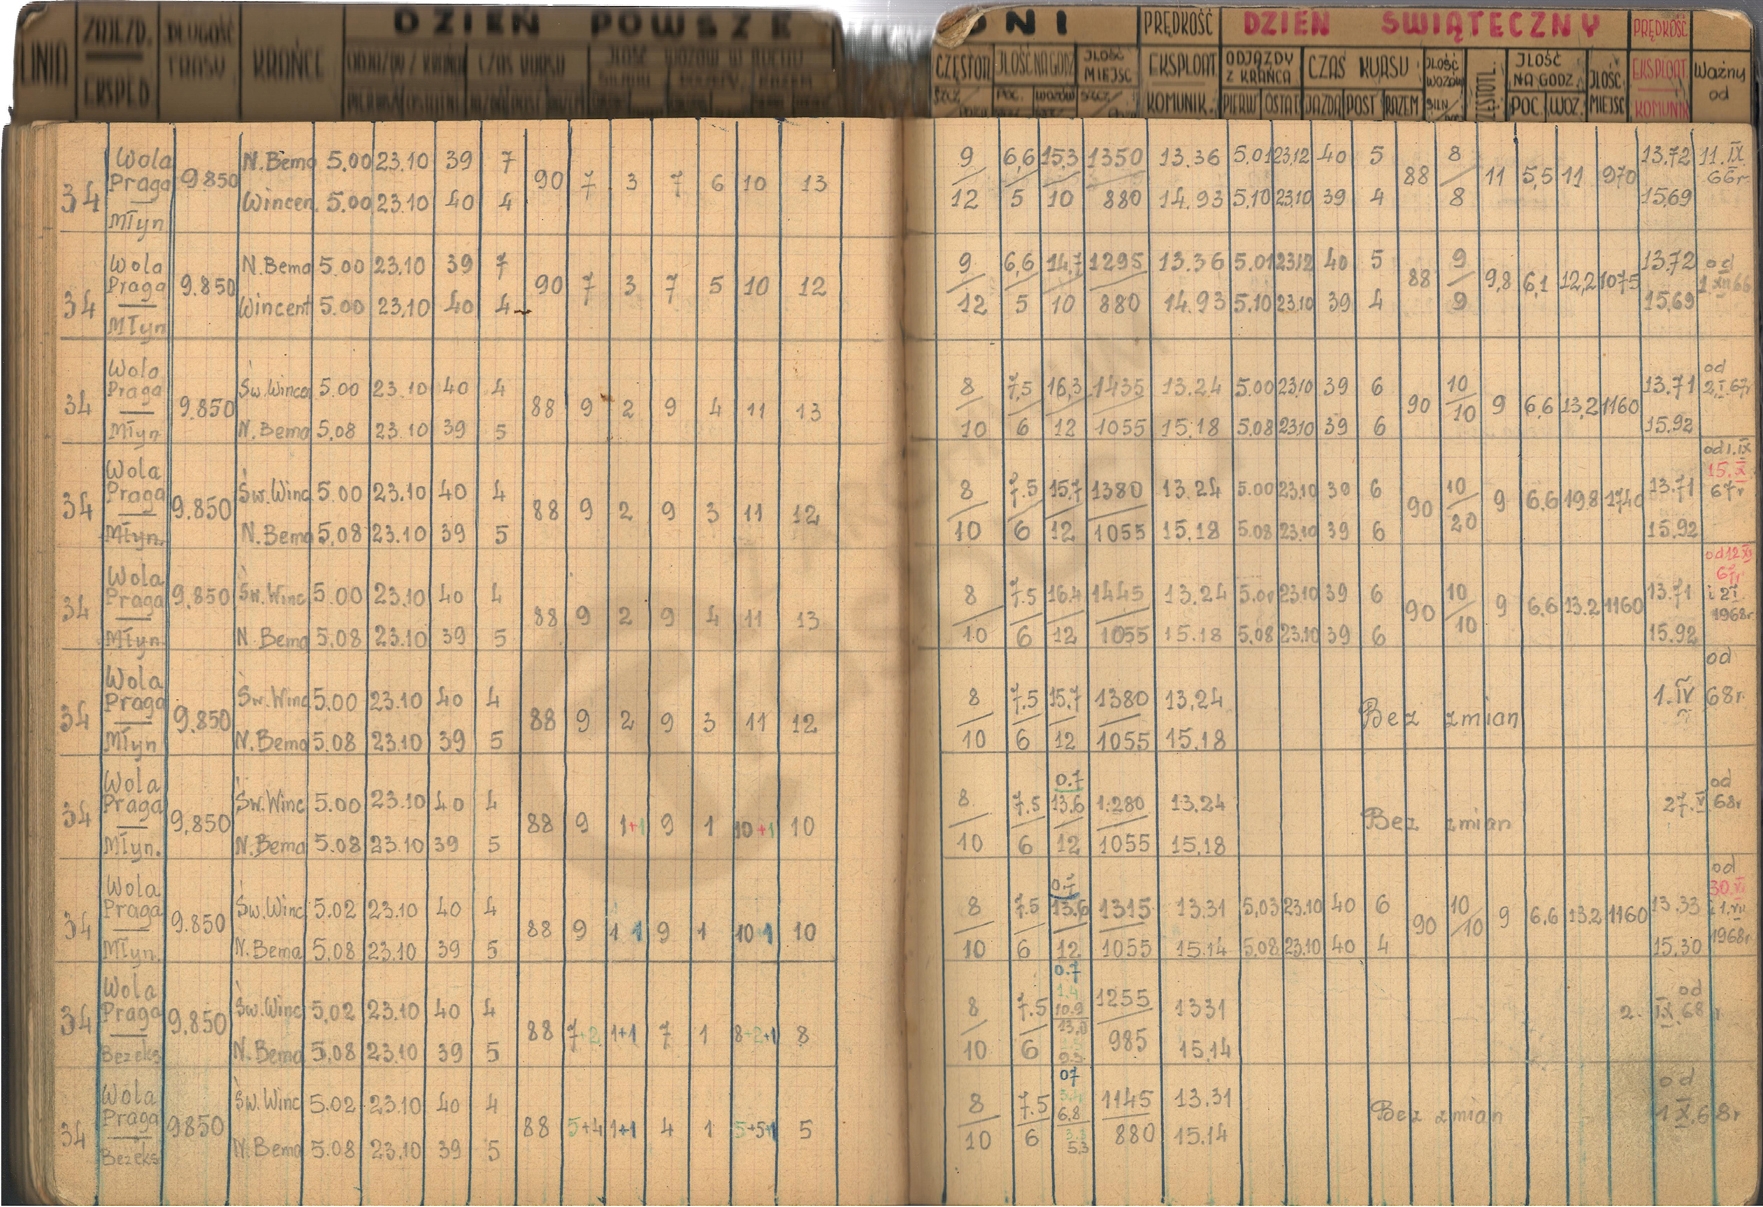 DZIEŃ POWSZE
DNI PRĘDKOŚĆ DZIEŃ ŚWIĄTECZNY PRĘDKOŚĆ
LINIA ZAJEZD. DŁUGOŚĆ TRASY KRAŃCE ODJAZDY Z KRAŃCA CZAS KURSU
EKSPED
CZĘSTOTL ILOŚĆ NA GODZ ILOŚĆ MIEJSC EKSPLOAT ODJAZDY Z KRAŃCA CZAS KURSU ILOŚĆ WOZÓW ILOŚĆ NA GODZ ILOŚĆ MIEJSC EKSPLOAT. Ważny od
KOMUNIK. PIERW OSTAT JAZDA POST RAZEM POC. WOZ. KOMUNIK
34 Wola Praga Młyn 9.850
N.Bema 5.00 23.10 39 7 90 7 3 7 6 10 13 9 6,6 15,3 1350 13.36 5.01 23.12 40 5 88 8 11 5,5 11 970 13.72 11.IX 66r.
Wincen. 5.00 23.10 40 4 12 5 10 880 14.93 5.10 23.10 39 4 8 15.69
34 Wola Praga Młyn 9.850
N.Bema 5.00 23.10 39 7 90 7 3 7 5 10 12 9 6,6 14,7 1295 13.36 5.01 23.12 40 5 88 9 9,8 6,1 12,2 1075 13.72 od 1.XII 66
Wincent 5.00 23.10 40 4 12 5 10 880 14.93 5.10 23.10 39 4 9 15.69
34 Wola Praga Młyn 9.850
Św.Winc 5.00 23.10 40 4 88 9 2 9 4 11 13 8 7,5 16,3 1435 13.24 5.00 23.10 39 6 90 10 9 6,6 13,2 1160 13.71 od 2.I.67r
N.Bema 5.08 23.10 39 5 10 6 12 1055 15.18 5.08 23.10 39 6 10 15.92
34 Wola Praga Młyn. 9.850
Św.Winc 5.00 23.10 40 4 88 9 2 9 3 11 12 8 7.5 15,7 1380 13.24 5.00 23.10 39 6 90 10 9 6,6 19.8 1740 13.71 od 1.IX 15.X 67r
N.Bema 5.08 23.10 39 5 10 6 12 1055 15.18 5.08 23.10 39 6 20 15.92
34 Wola Praga Młyn. 9.850
Św.Winc 5.00 23.10 40 4 88 9 2 9 4 11 13 8 7.5 16.4 1445 13.24 23.10 39 6 90 10 9 6,6 13.2 1160 13.71 67r 1968r
N.Bema 5.08 23.10 39 5 10 6 12 1055 15.18 5.08 23.10 39 6 10 15.92
34 Wola Praga Młyn 9.850
Św.Winc 5.00 23.10 40 4 88 9 2 9 3 11 12 8 7.5 15,7 1380 13,24 Bez zmian od 1.IV 68r.
N.Bema 5.08 23.10 39 5 10 6 12 1055 15.18
34 Wola Praga Młyn. 9,850
Św.Winc 5.00 23.10 40 4 88 9 1+1 9 1 10+1 10 8 7.5 0.7 13.6 1.280 13.24 Bez zmian od 27.V 68r
N.Bema 5.08 23.10 39 5 10 6 12 1055 15,18
34 Wola Praga Młyn. 9.850
Św.Winc 5.02 23.10 40 4 88 9 1 1 9 1 10 1 10 8 7.5 0.7 13.6 1315 13.31 5.03 23.10 40 6 90 10 9 6,6 13.2 1160 13.33 od 30.VI 1968r
N.Bema 5.08 23.10 39 5 10 6 12 1055 15.14 5.08 23.10 40 4 10 15.30
34 Wola Praga Bezeks 9.850
Św.Winc 5,02 23.10 40 4 88 7+2 1+1 7 1 8+2+1 8 8 7.5 0.7 1.4 10.9 1255 1331 od 2. IX.68 r
N.Bema 5.08 23.10 39 5 10 6 985 15.14
34 Wola Praga Bezeks 9850
Św.Winc 5.02 23.10 40 4 88 5+4 1+1 4 1 5+5+1 5 8 7.5 07 6.8 1145 13.31 Bez zmian od 1 X.68r
N.Bema 5.08 23.10 39 5 10 6 5,3 880 15.14